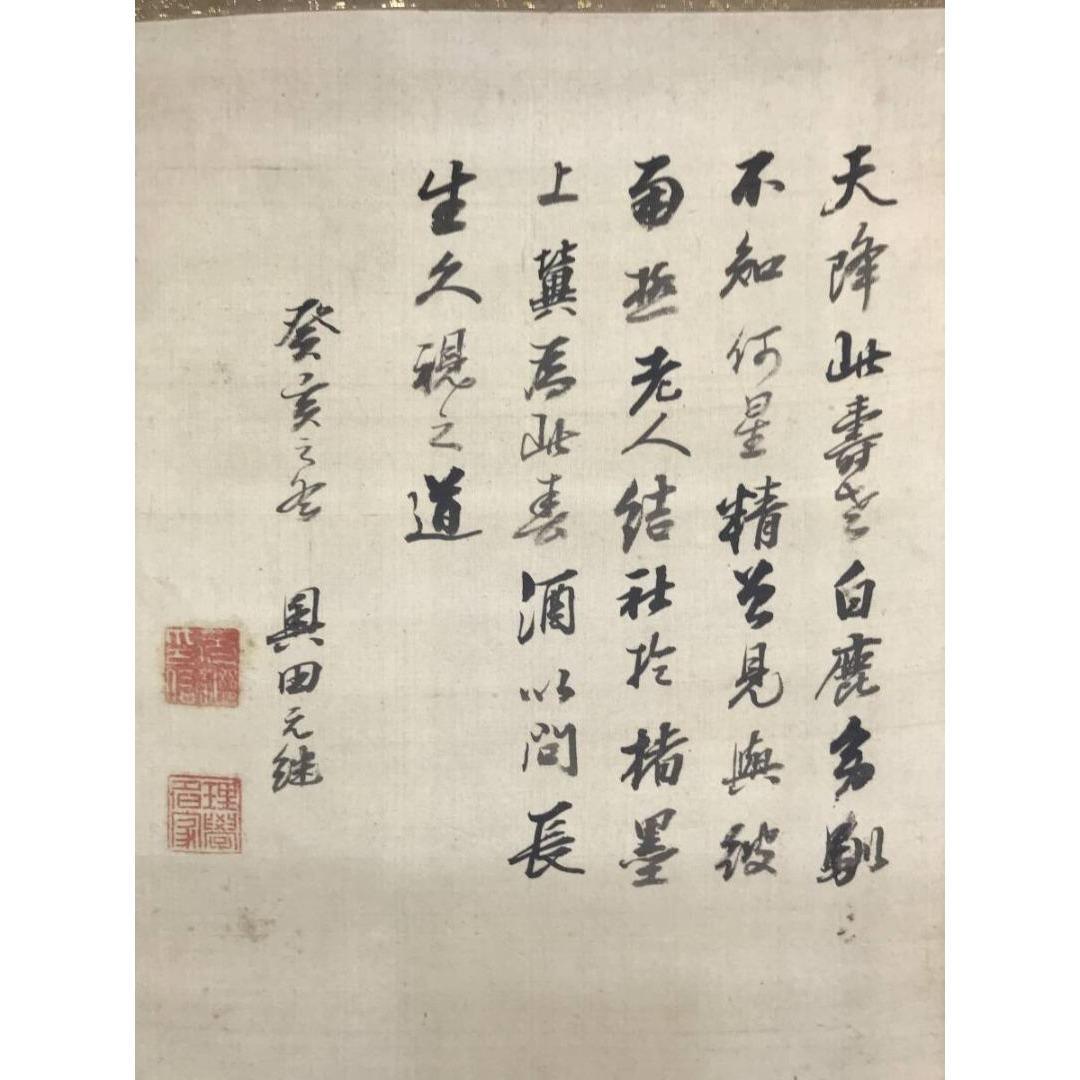 天降此壽老白鹿多馴
不知何星精曾見與彼
南極老人結社於楮墨
上冀為此春酒以問長
生久視之道
癸亥之冬 奥田元継
理學名家